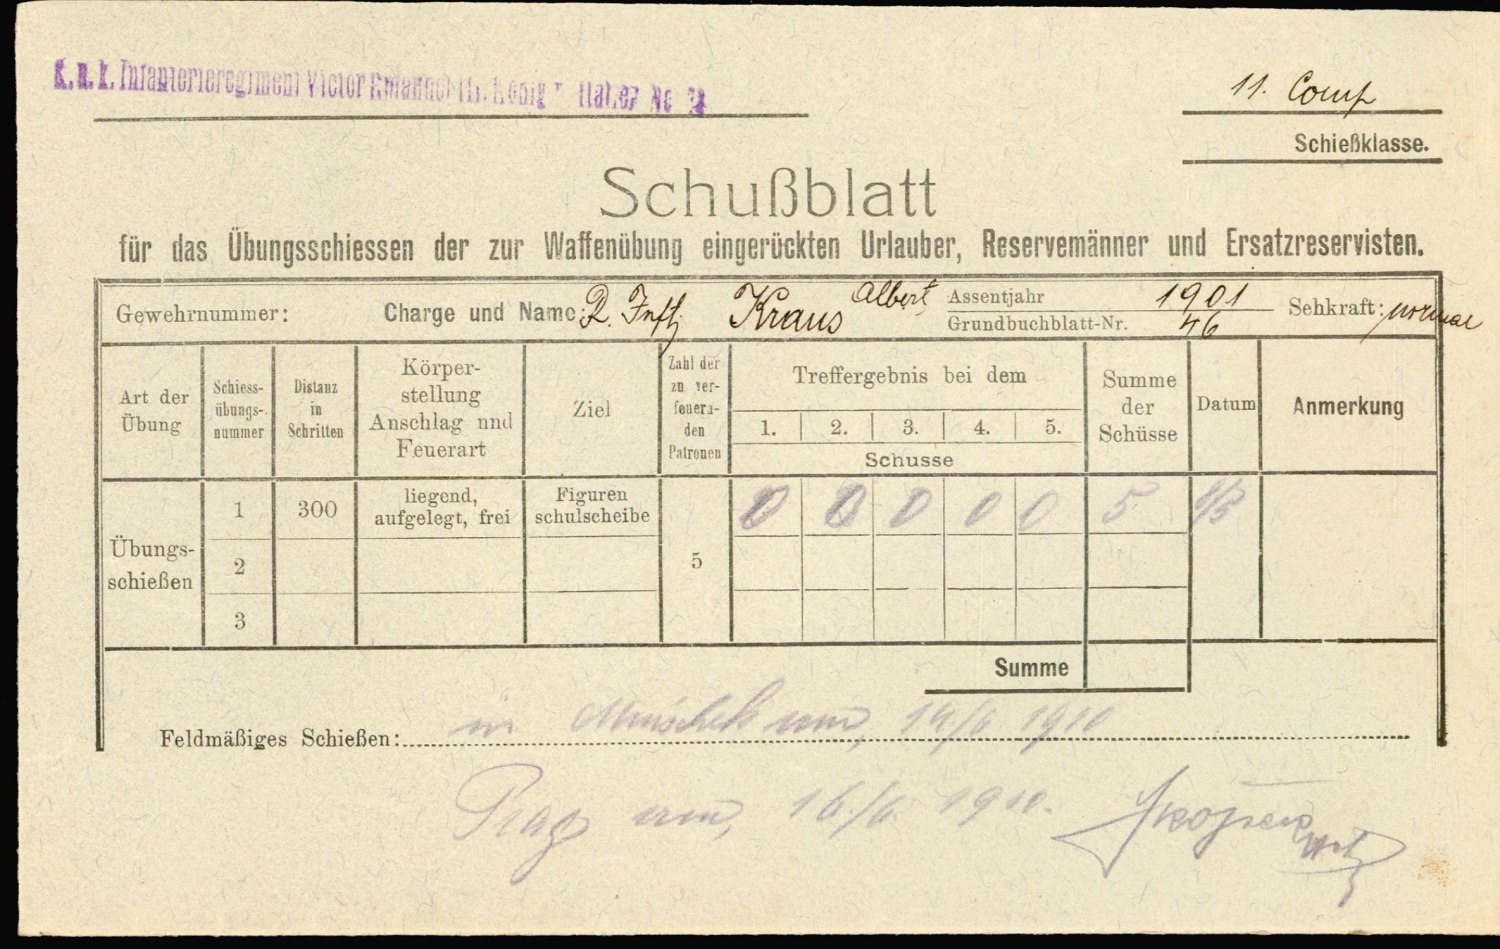 K. u. k. Infanterieregiment Victor Emanuel III. König
11. Comp
Schießklasse.
Schußblatt
für das Übungsschiessen der zur Waffenübung eingerückten Urlauber, Reservemänner und Ersatzreservisten.
Gewehrnummer: Charge und Name: R. Inftj Kraus Albert Assentjahr 1901 Sehkraft: normal
Grundbuchblatt-Nr. 46
Art der Übung
Schiess-übungs-nummer
Distanz in Schritten
Körper-stellung Anschlag nnd Feuerart
Ziel
Zahl der zu ver-feuern-den Patronen
Treffergebnis bei dem
1. 2. 3. 4. 5.
Schusse
Summe der Schüsse
Datum
Anmerkung
Übungs-schießen
1 300 liegend, aufgelegt, frei Figuren schulscheibe 5 0 0 0 0 0 5
2
3
Summe
Feldmäßiges Schießen: in am, 14/6 1910
Prag am, 16./6. 1910.